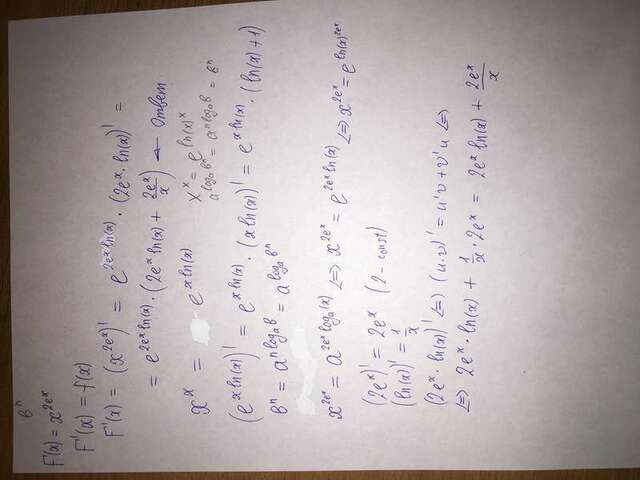 bⁿ
F(x) = x^{2e^x}
F'(x) = f(x)
F'(x) = (x^{2e^x})' = e^{2e^x ln(x)} · (2e^x · ln(x))' =
= e^{2e^x ln(x)} · (2e^x ln(x) + 2e^x/x) ← Ответ
x^x = e^{x ln(x)} x^x = e^{ln(x)^x}
a^{log_a b^n} = a^{n log_a b} = b^n
(e^{x ln(x)})' = e^{x ln(x)} · (x ln(x))' = e^{x ln(x)} · (ln(x)+1)
b^n = a^{n log_a b} = a^{log_a b^n}
x^{2e^x} = a^{2e^x log_a(x)} <=> x^{2e^x} = e^{2e^x ln(x)} <=> x^{2e^x} = e^{ln(x)^{2e^x}}
(2e^x)' = 2e^x (2 - const)
(ln(x))' = 1/x
(2e^x · ln(x))' <=> (u·v)' = u'v + v'u <=>
<=> 2e^x · ln(x) + 1/x · 2e^x = 2e^x ln(x) + 2e^x/x